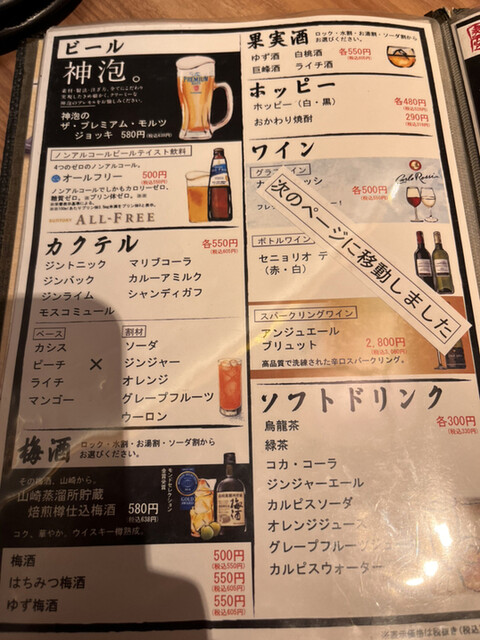 ビール
神泡。
素材・製法・注ぎ方、全てにこだわり
神泡の
ザ・プレミアム・モルツ
ジョッキ 580円(税込638円)
PREMIUM
ノンアルコールビールテイスト飲料
4つのゼロのノンアルコール。
オールフリー 500円
(税込550円)
ノンアルコールでしかもカロリーゼロ、
糖質ゼロ。※プリン体ゼロ。※
SUNTORY ALL-FREE
カクテル 各550円
(税込605円)
ジントニック マリブコーラ
ジンバック カルーアミルク
ジンライム シャンディガフ
モスコミュール
ベース 割材
カシス ソーダ
ピーチ × ジンジャー
ライチ オレンジ
マンゴー グレープフルーツ
ウーロン
梅酒 ロック・水割・お湯割・ソーダ割から
お選びください。
その梅酒、山崎から。
山崎蒸溜所貯蔵
焙煎樽仕込梅酒 580円
(税込638円)
コク、華やか、ウイスキー樽熟成。
モンドセレクション
金賞受賞
梅酒
梅酒 500円
(税込550円)
はちみつ梅酒 550円
(税込605円)
ゆず梅酒 550円
(税込605円)
果実酒 ロック・水割・お湯割・ソーダ割から
お選びください。
ゆず酒 白桃酒 各550円
(税込605円)
巨峰酒 ライチ酒
ホッピー
ホッピー(白・黒) 各480円
(税込528円)
おかわり焼酎 290円
(税込319円)
ワイン
グラスワイン
各500円
(税込550円)
Carlo Rossi
フレ
次のページに移動しました
ボトルワイン
セニョリオ デ
(赤・白)
スパークリングワイン
アンジュエール
ブリュット 2,800円
(税込3,080円)
高品質で洗練された辛口スパークリング。
ソフトドリンク
各300円
(税込330円)
烏龍茶
緑茶
コカ・コーラ
ジンジャーエール
カルピスソーダ
オレンジジュース
グレープフルーツ
カルピスウォーター
※表示価格は税抜き(税込